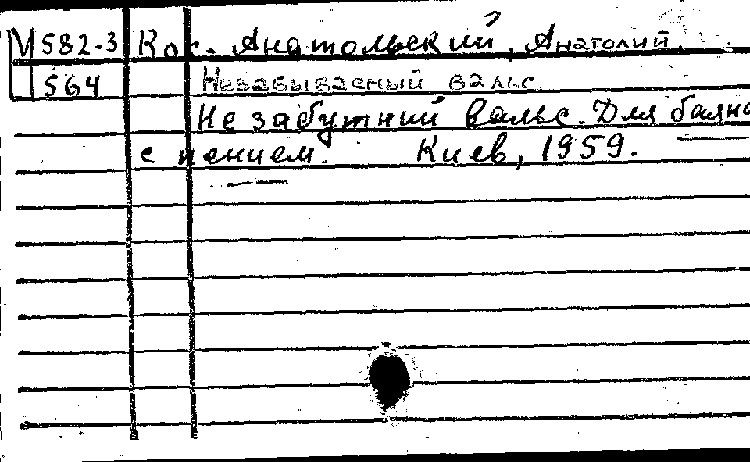 М 582-3 Кос-Анатольский, Анатолий.
564 Незабываемый вальс
Незабутний вальс. Для баяна
с пением. Киев, 1959.